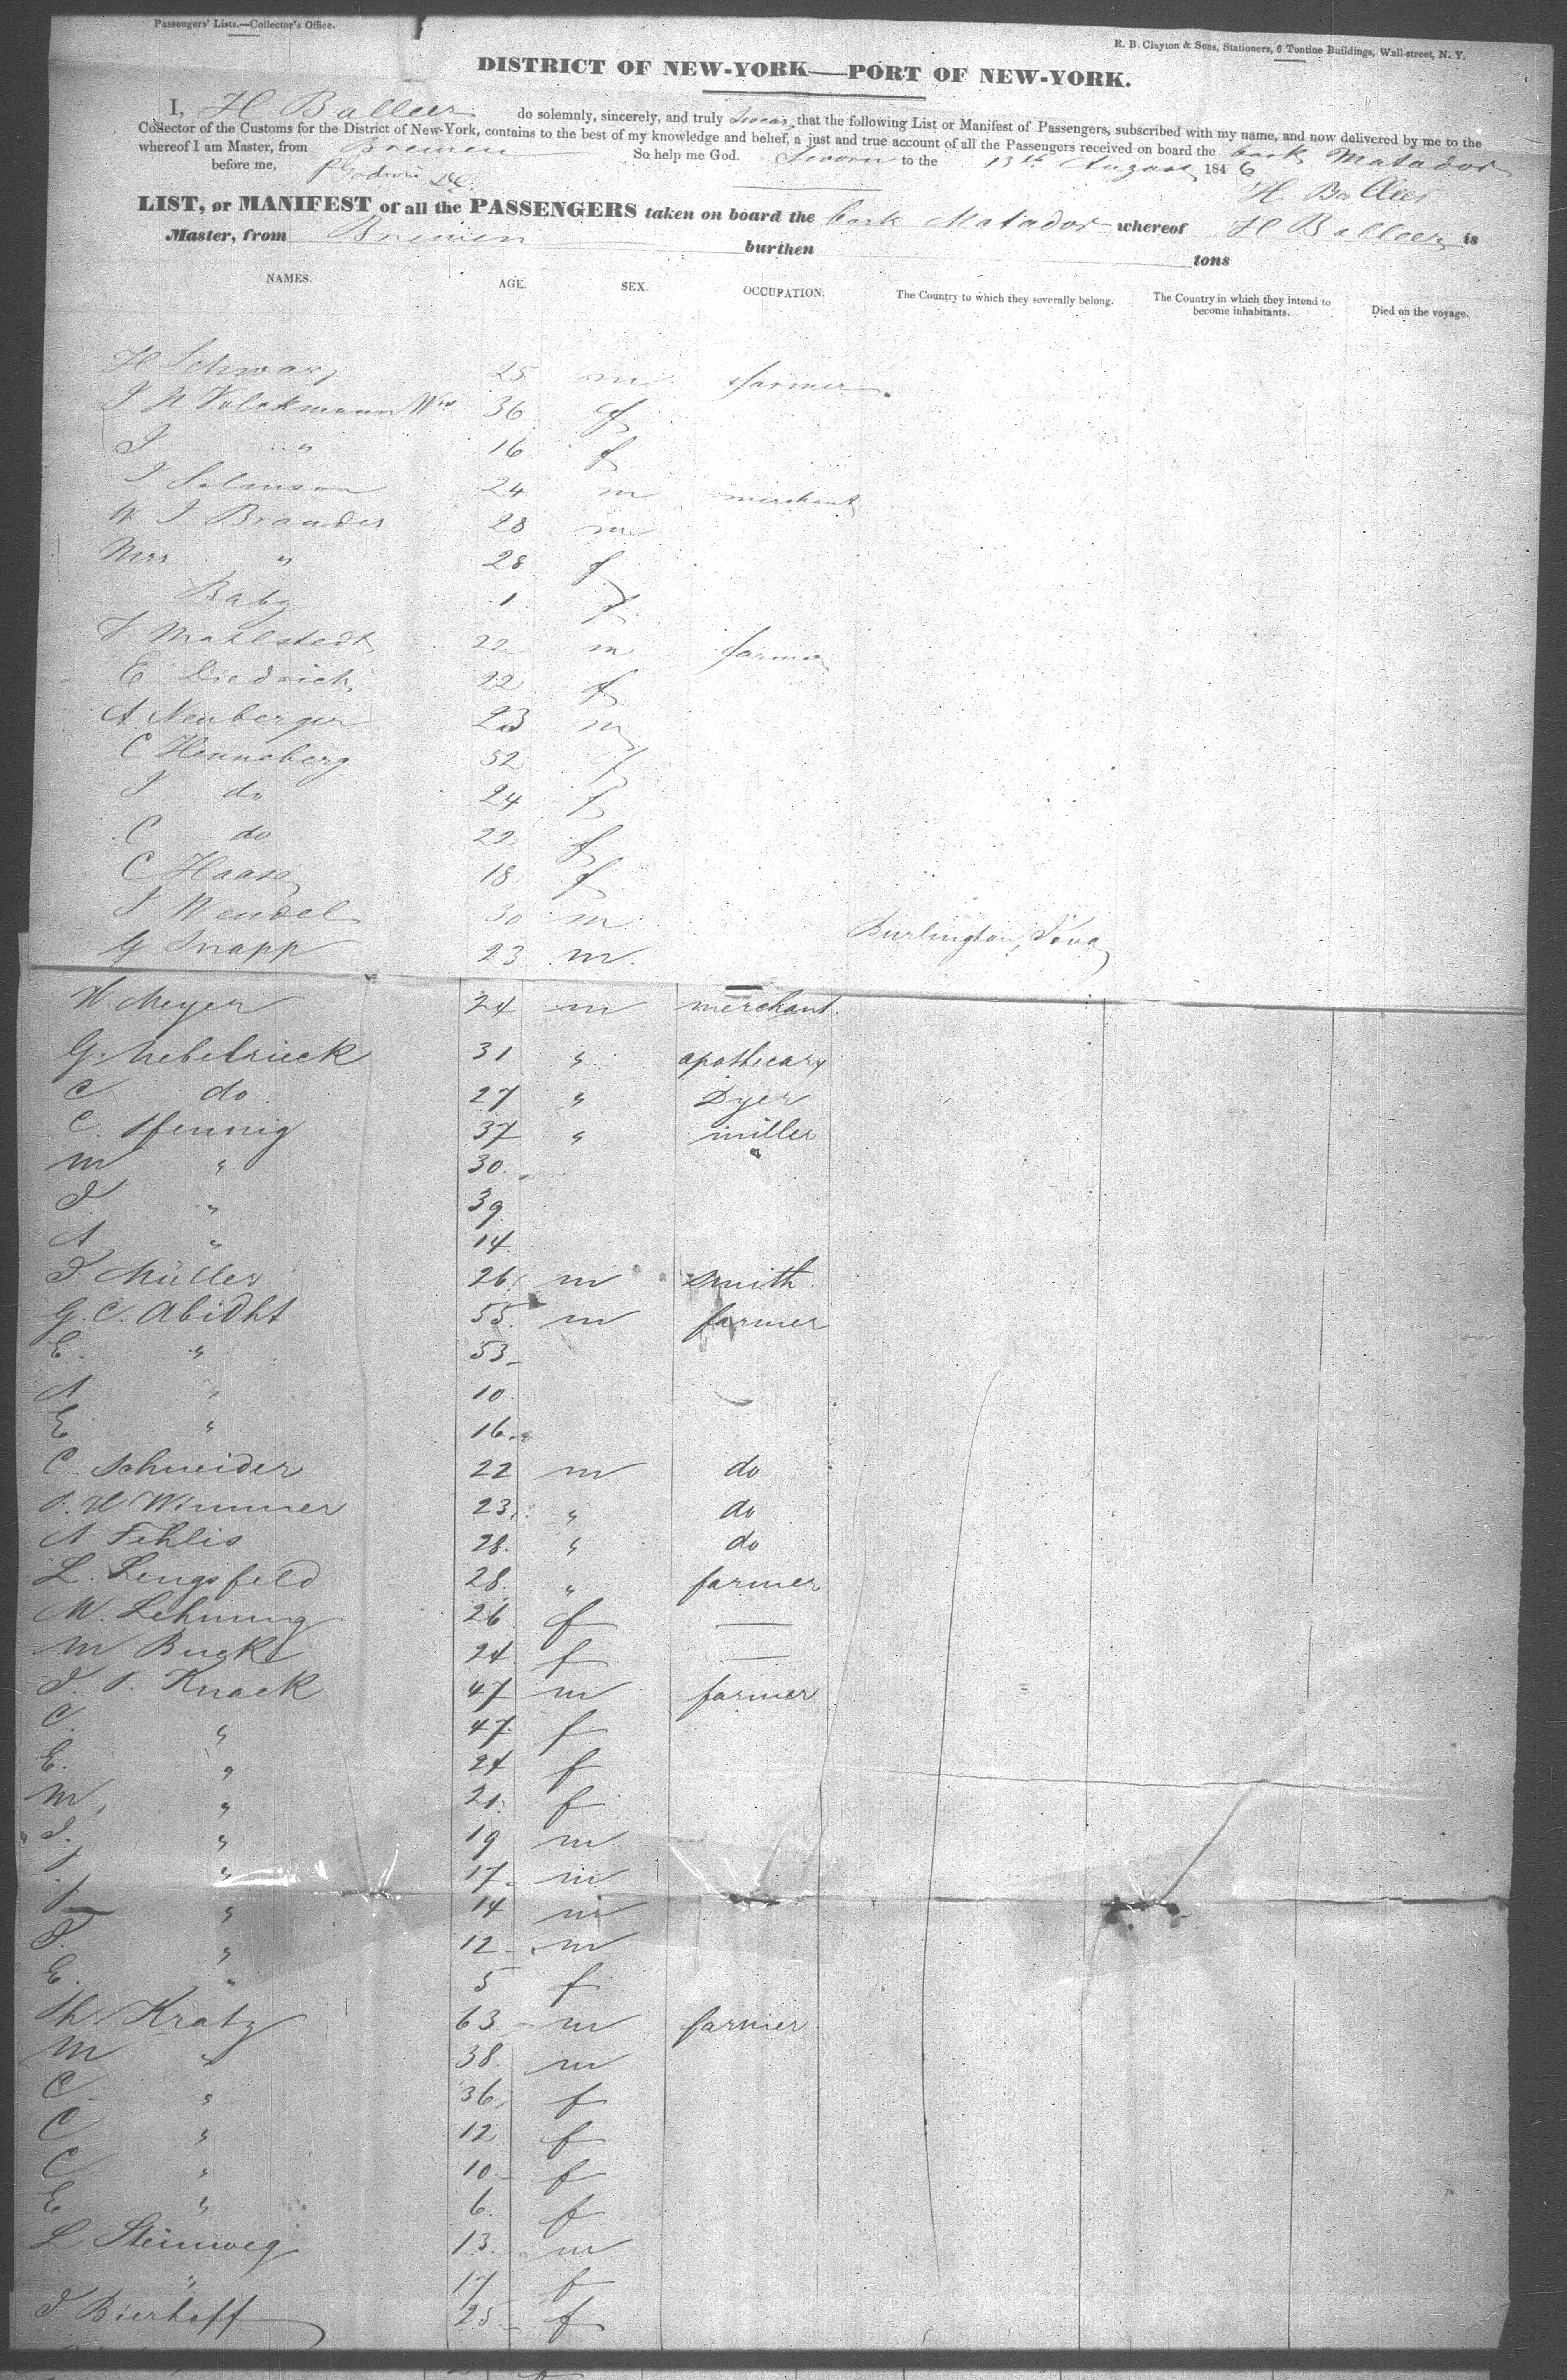 Passengers' Lists.—Collector's Office.
R. B. Clayton & Sons, Stationers, 6 Tontine Buildings, Wall-street, N. Y.
DISTRICT OF NEW-YORK—PORT OF NEW-YORK.
I, H Balleer do solemnly, sincerely, and truly swear that the following List or Manifest of Passengers, subscribed with my name, and now delivered by me to the
Collector of the Customs for the District of New-York, contains to the best of my knowledge and belief, a just and true account of all the Passengers received on board the bark Matador
whereof I am Master, from Bremen So help me God. Sworn to the 13th August 1846
before me, H Balleer
LIST, or MANIFEST of all the PASSENGERS taken on board the bark Matador whereof H Balleer is
Master, from Bremen burthen tons
NAMES. AGE. SEX. OCCUPATION. The Country to which they severally belong. The Country in which they intend to become inhabitants. Died on the voyage.
H Schwarz 25 m farmer
Volckmann 36 f
J " 16 f
24 m merchant
Brandes 28 m
Mrs " 28 f
Baby 1 f
Mahlstedt 22 m farmer
E Diedrich 22 f
A Neuberger 23 m
C Henneberg 52 f
J do 24 f
C do 22 f
C Haase 18 f
J Wendel 30 m
G Snapp 23 m Burlington, Iowa
H Meyer 24 m merchant
G. 31 " apothecary
C do 27 " Dyer
C. Pfennig 37 " miller
M " 30.
J. " 39
A " 14.
J Müller 26 m smith
G. C. Abidht 55. m farmer
E. " 53
A " 10.
E " 16
C. Schneider 22 m do
Wimmer 23 " do
A Fehlis 28. " do
L. Lengsfeld 28. " farmer
W. Lehning 26 f —
M Bugke 24 f —
J. P. Knack 47 m farmer
C. " 47. f
E. " 24 f
M, " 21. f
J. " 19 m
" 17 m
" 14 m
" 12 m
E. " 5 f
Th. Kratz 63 m farmer
M " 38. m
C " 36 f
C " 12 f
C " 10 f
E " 6. f
L Steinweg 13. m
" 17 f
J Bierhoff 25 f